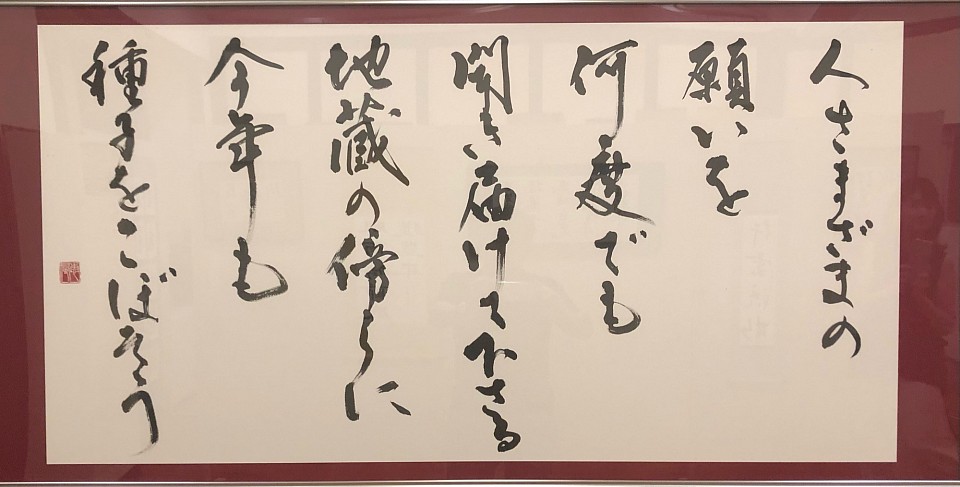 人さまざまの
願いを
何度でも
聞き届けて下さる
地蔵の傍らに
今年も
種子をこぼそう